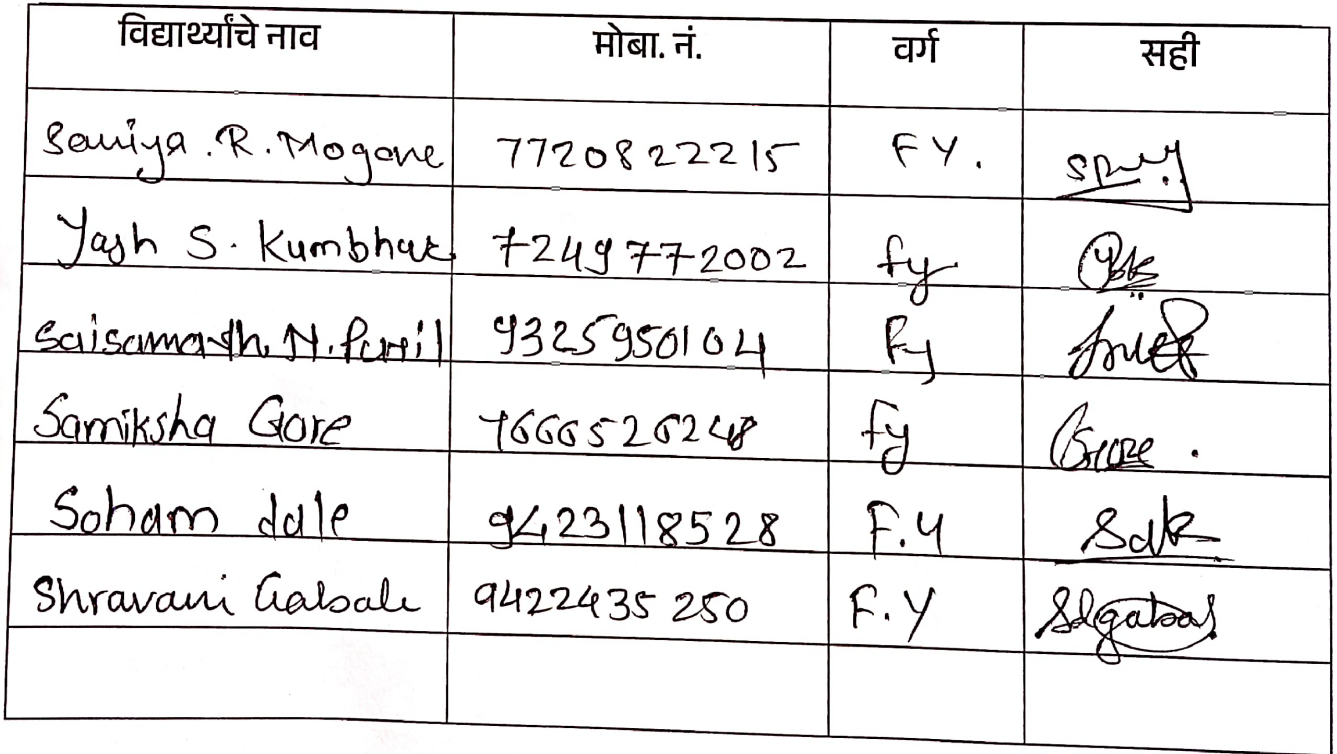 विद्यार्थ्यांचे नाव मोबा. नं. वर्ग सही
Saniya . R. Mogane 7720822215 FY.
Yash S. Kumbhar 7249772002 fy
Saisamarth N. Patil 9325950104 Fy
Samiksha Gore 7666526248 fy
Soham dale 9423118528 F.Y
Shravani Gabale 9422435250 F.Y